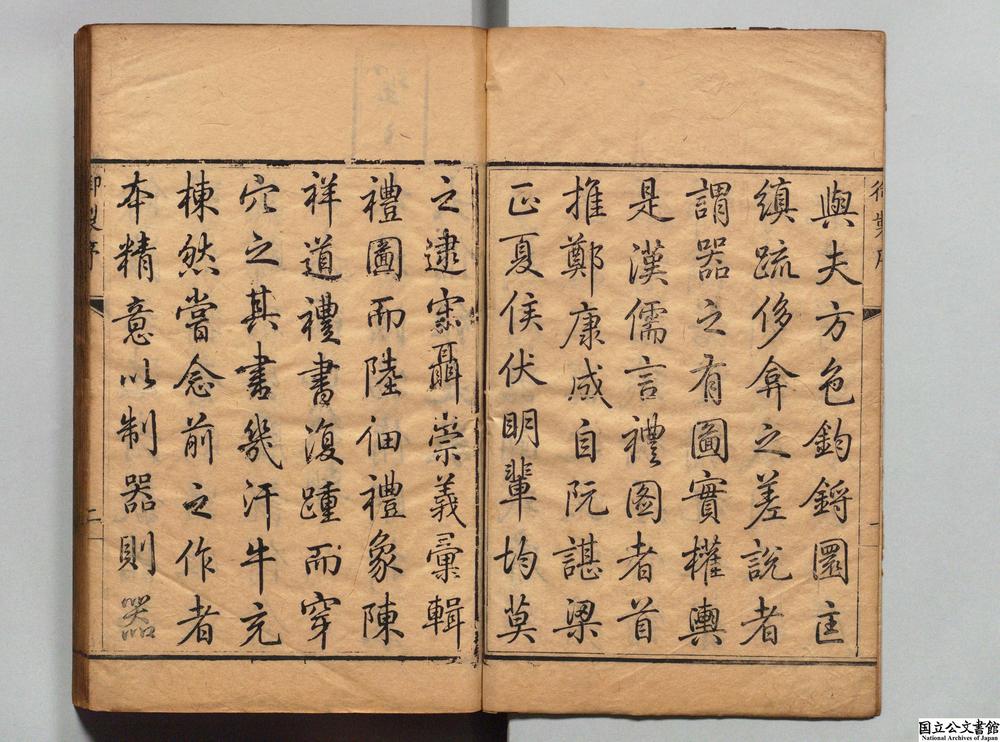 與夫方色鈞鋝圜匡
縝疏侈弇之差說者
謂器之有圖實權輿
是漢儒言禮图者首
推鄭康成自阮諶梁
正夏侯伏朗輩均莫
之逮宋聶崇義彙輯
禮圖而陸佃禮象陳
祥道禮書復踵而穿
穴之其書幾汗牛充
棟然嘗念前之作者
本精意以制器則器
御製序
二
国立公文書館
National Archives of Japan